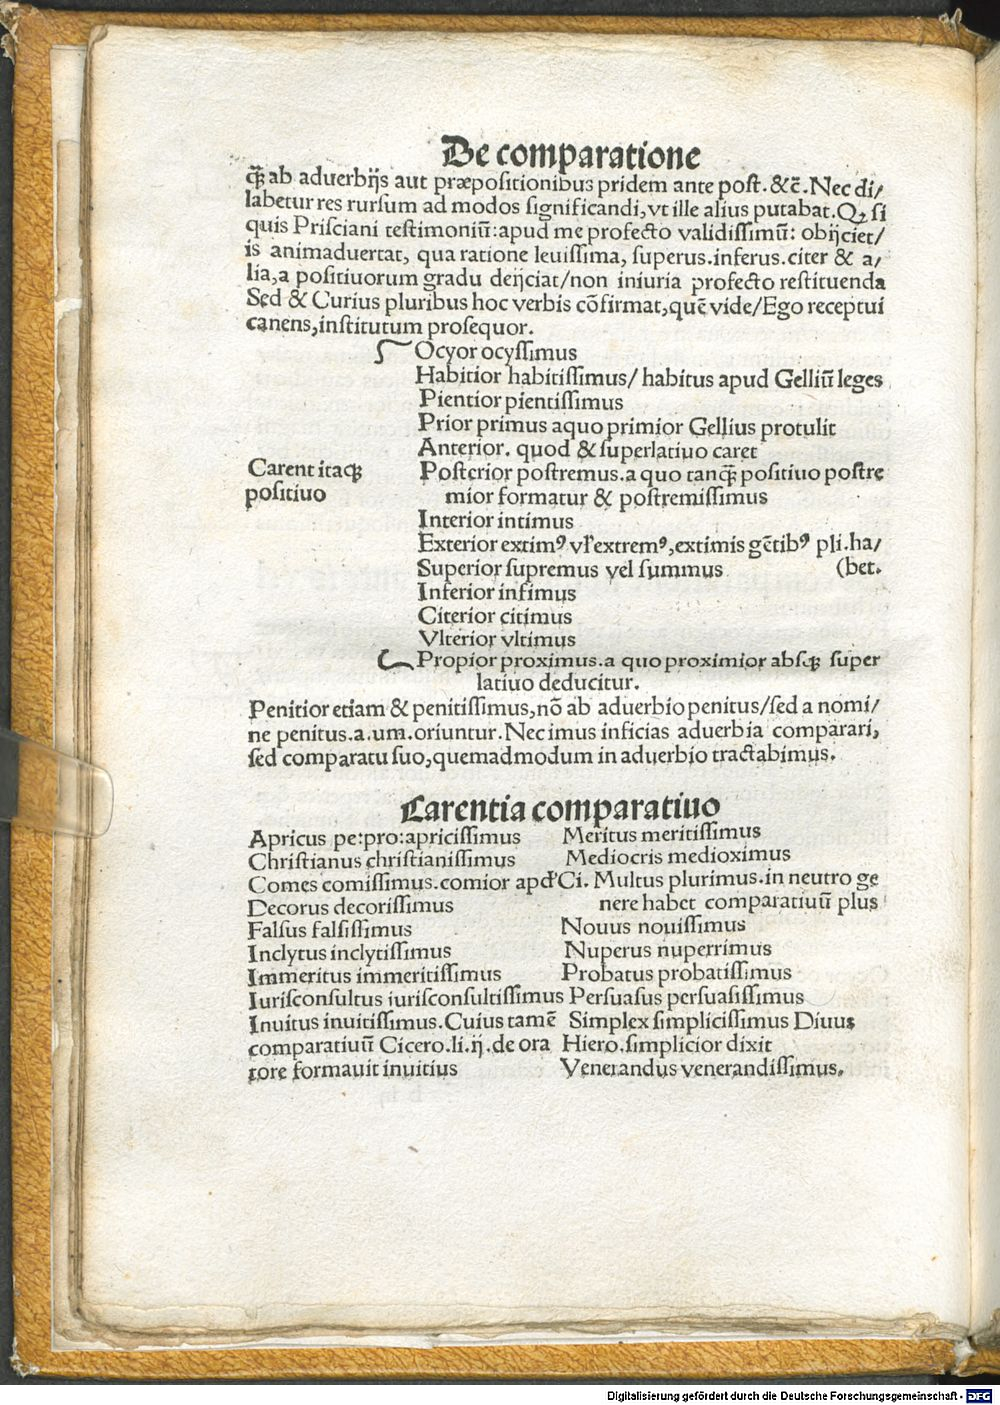 De comparatione
q̃ꝫ ab aduerbijs aut præpositionibus pridem ante post. &c̄. Nec di/
labetur res rursum ad modos significandi, vt ille alius putabat. Qꝫ si
quis Prisciani testimoniũ: apud me profecto validissimũ: obijciet/
is animaduertat, qua ratione leuissima, superus. inferus. citer & a/
lia, a positiuorum gradu deijciat/ non iniuria profecto restituenda
Sed & Curius pluribus hoc verbis cõfirmat, quẽ vide/ Ego receptui
canens, institutum prosequor.
Carent itaqꝫ
positiuo
Ocyor ocyssimus
Habitior habitissimus/ habitus apud Gelliũ leges
Pientior pientissimus
Prior primus a quo primior Gellius protulit
Anterior. quod & superlatiuo caret
Posterior postremus. a quo tanq̃ꝫ positiuo postre
mior formatur & postremissimus
Interior intimus
Exterior extimꝰ vƚ extremꝰ, extimis gẽtibꝰ pli. ha/
Superior supremus vel summus (bet.
Inferior infimus
Citerior citimus
Vlterior vltimus
Propior proximus. a quo proximior absqꝫ super
latiuo deducitur.
Penitior etiam & penitissimus, nõ ab aduerbio penitus/ sed a nomi/
ne penitus. a. um. oriuntur. Nec imus inficias aduerbia comparari,
sed comparatu suo, quemadmodum in aduerbio tractabimus.
Carentia comparatiuo
Apricus pe: pro: apricissimus
Christianus christianissimus
Comes comissimus. comior apď Ci.
Decorus decorissimus
Falsus falsissimus
Inclytus inclytissimus
Immeritus immeritissimus
Iurisconsultus iurisconsultissimus
Inuitus inuitissimus. Cuius tamẽ
comparatiuũ Cicero. li. ij. de ora
tore formauit inuitius
Meritus meritissimus
Mediocris medioximus
Multus plurimus. in neutro ge
nere habet comparatiuũ plus
Nouus nouissimus
Nuperus nuperrimus
Probatus probatissimus
Persuasus persuasissimus
Simplex simplicissimus Diuus
Hiero. simplicior dixit
Venerandus venerandissimus.
Digitalisierung gefördert durch die Deutsche Forschungsgemeinschaft - DFG